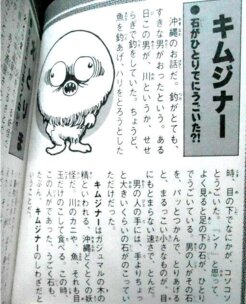 キムジナー
●石がひとりでにうごいた?!
沖縄のお話だ。釣がとても、
すきな男がおったという。ある
日この男が、川というか、せせ
らぎで釣をしていた。ちょうど、
魚を釣あげ、ハリをとろうとした
時、目の下でなにかが、コソコソ
とうごいた。「ン?」と思って
よく見ると足の下の石が、ひと
りでうごいている。男の人がその石
を、パッとつかんで、とりあげる
と、まるっこい小さなものが、目
にもとまらない速さで、とんだ。
男の人の手には、手よりちょっ
と大きいくらいの石が
キムジナーはガジュマルの木の
精といわれる、沖縄どくとくの妖
怪だ。川のカニや魚、それも目
玉だけのこして食べる。この時、
この人があった、うごく石も
キムジナーのしわざ